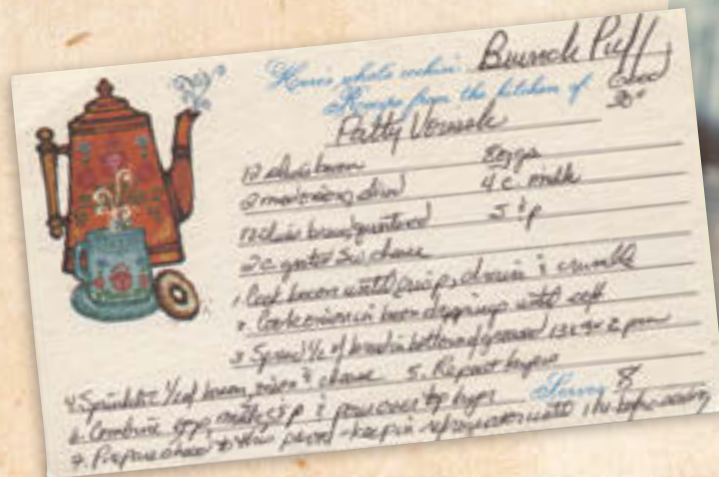 Here's what's cookin': Brunch Puff
Recipe from the kitchen of
Patty
12 slices bacon 8 eggs
2 med onions, sliced 4 c. milk
12 slices bread quartered S & P
2 c. grated Swiss cheese
1. Cook bacon until crisp, drain & crumble
2. Cook onion in bacon drippings until soft
3. Spread 1/2 of bread in bottom of greased 13 x 9 x 2 pan
4. Sprinkle 1/2 of bacon, onion & cheese 5. Repeat layers
6. Combine eggs, milk, S & P & pour over top layer Serves 8
7. Prepare ahead to this point - keep in refrigerator until 1 hr before serving